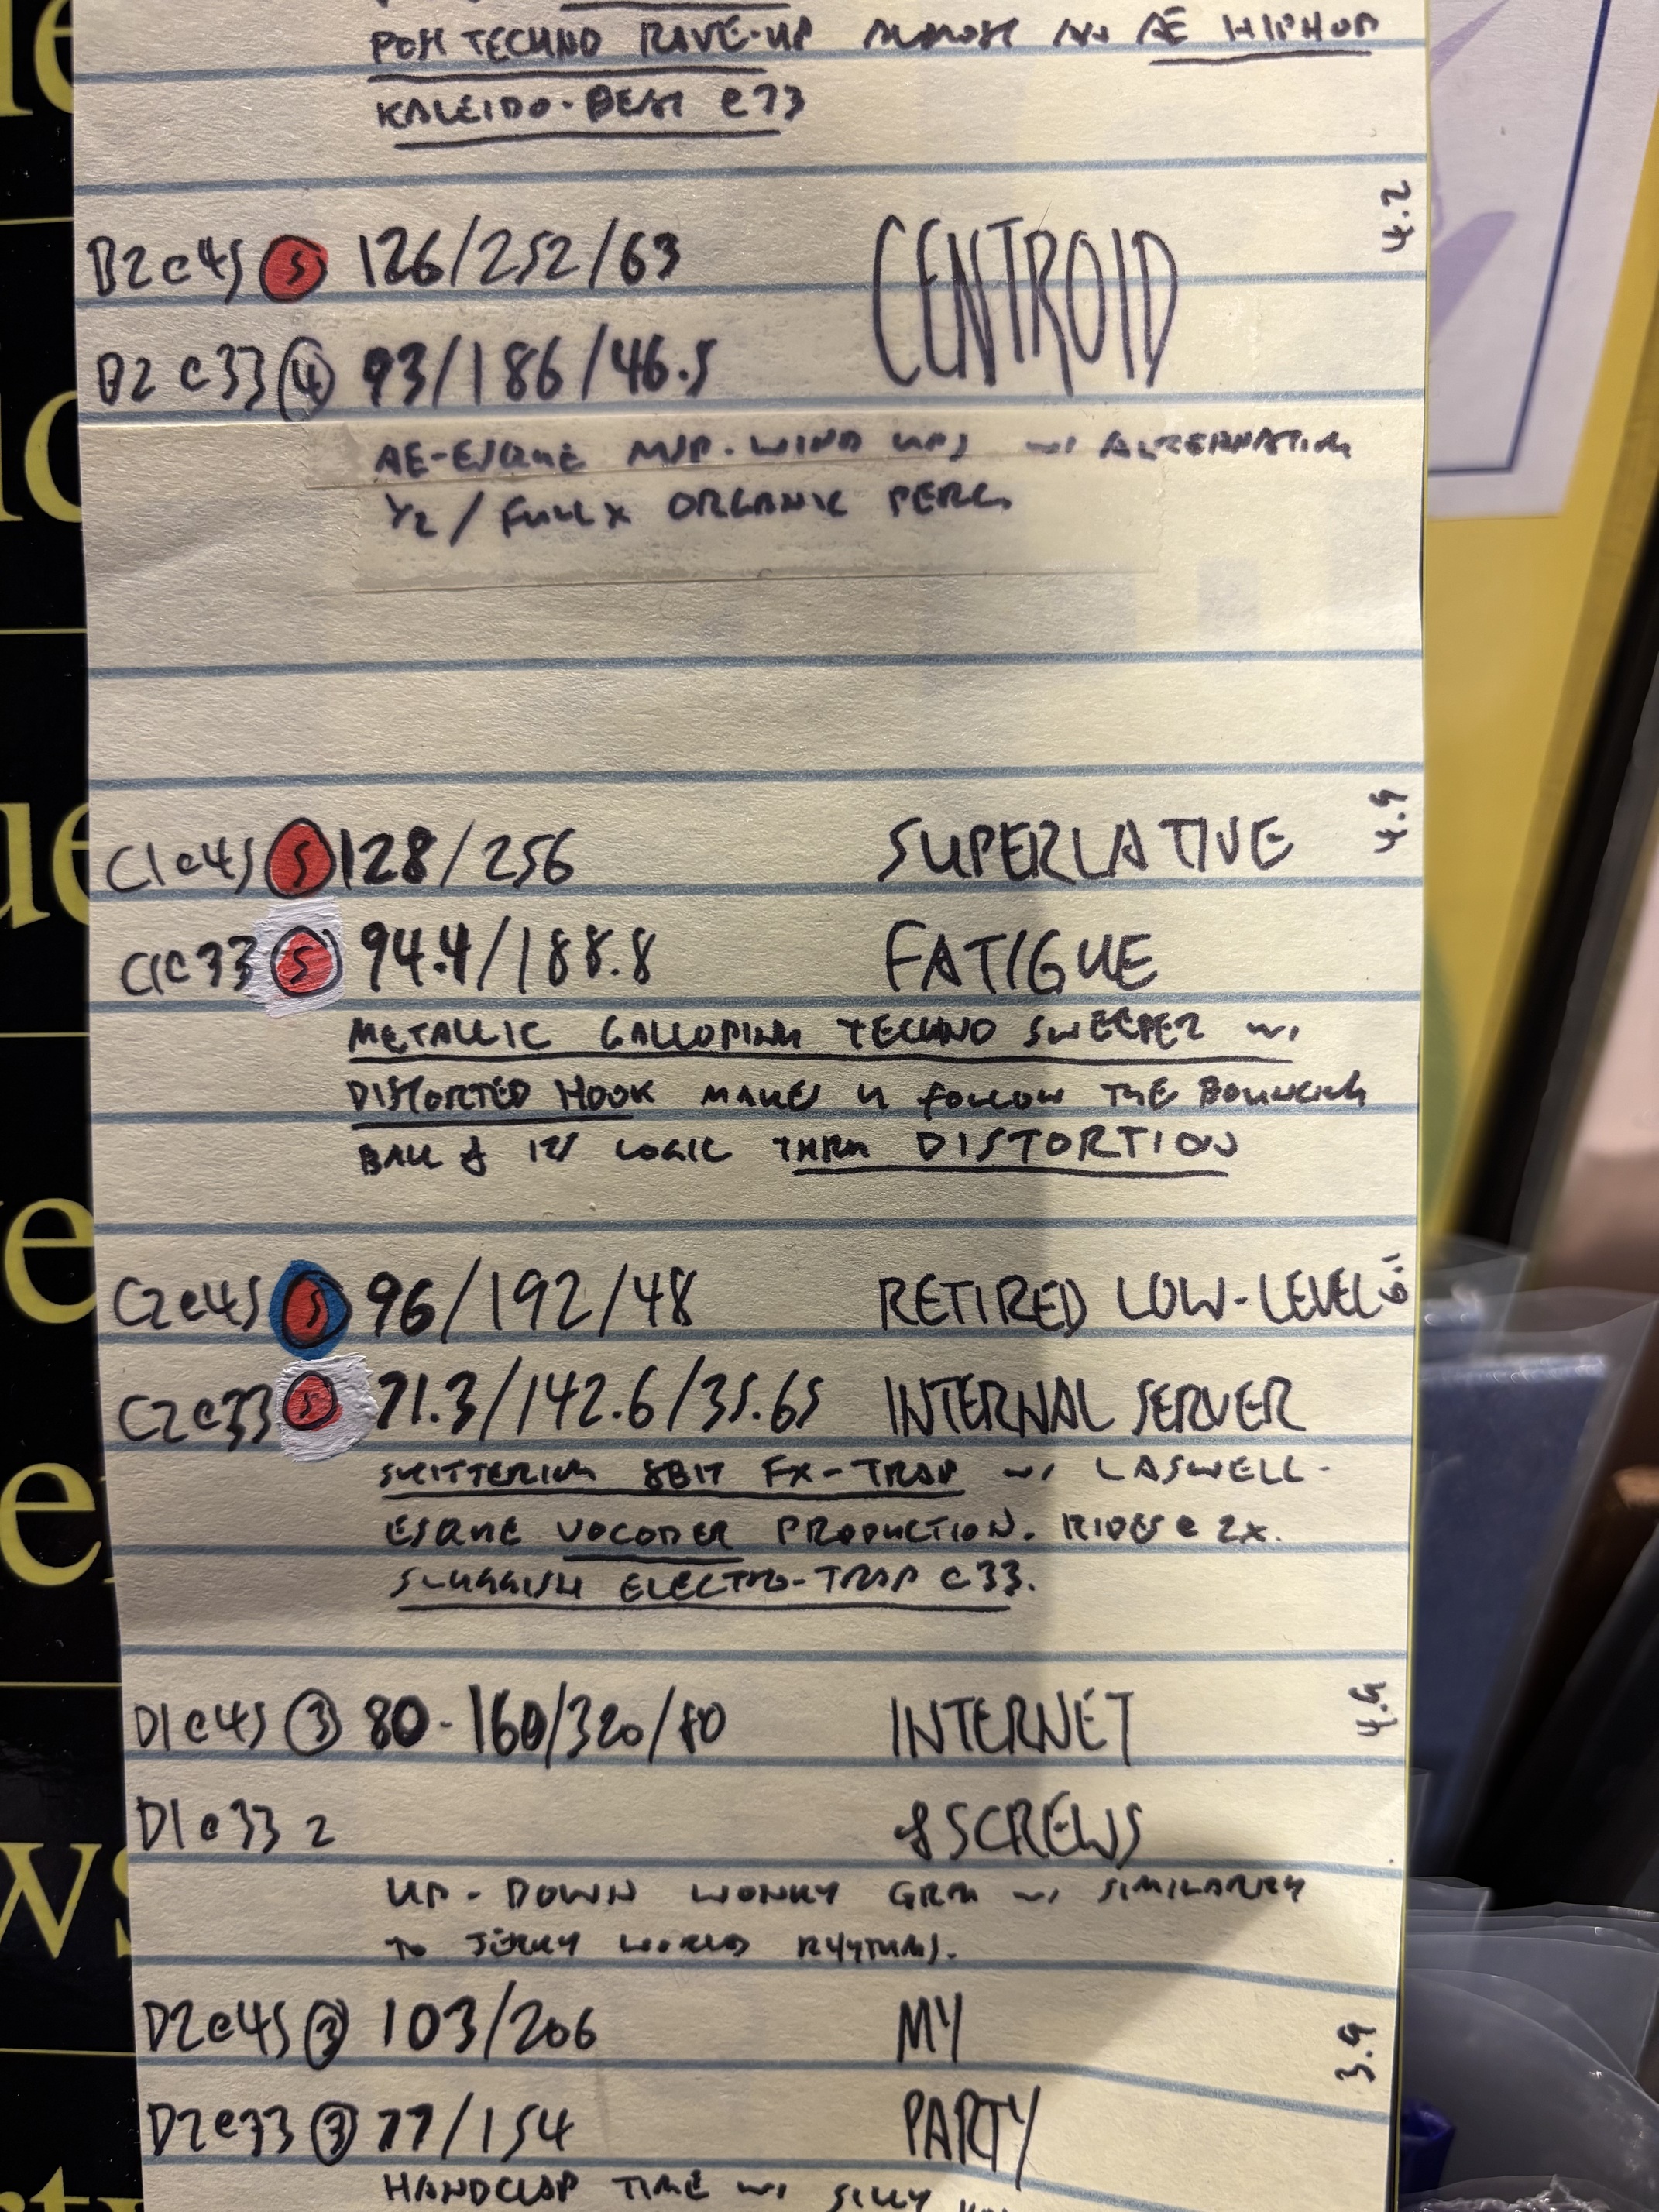 POST TECHNO RAVE-UP ALMOST AN AE HIPHOP
KALEIDO-BEST @33
B2@45 5 126/252/63 CENTROID 4.2
B2@33 4 93/186/46.5
AE-ESQUE WIND UPS w/ ALTERNATING
1/2 / FULL X ORGANIC PERC
C1@45 5 128/256 SUPERLATIVE 4.9
C1@33 5 94.4/188.8 FATIGUE
METALLIC GALLOPING TECHNO SWEEPER w/
DISTORTED HOOK MAKES U FOLLOW THE BOUNCING
BALL & ITS LOGIC THRU DISTORTION
C2@45 5 96/192/48 RETIRED LOW-LEVEL 6.1
C2@33 5 71.3/142.6/35.65 INTERNAL SERVER
SKITTERING 8BIT FX-TRAP w/ LASWELL-
ESQUE VOCODER PRODUCTION. RIDES @ 2X.
SLUGGISH ELECTRO-TRAP @33.
D1@45 3 80-160/320/80 INTERNET 4.5
D1@33 2 & SCREWS
UP-DOWN WONKY GRM w/ SIMILARITY
TO JERKY WORLD RHYTHMS.
D2@45 3 103/206 MY 3.9
D2@33 3 77/154 PARTY
HANDCLAP TIME w/ SILLY